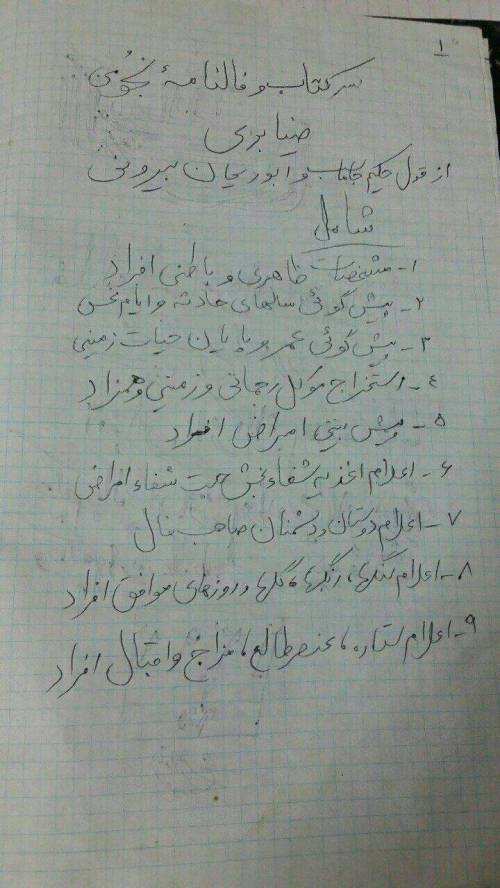 ۱
سر کتاب و فالنامهٔ نجومی
ضیابری
از قول حکیم جاماسب و ابوریحان بیرونی
شامل
۱- مشخصات ظاهری و باطنی افراد
۲- پیش گوئی سالهای حادثه و ایام نحس
۳- پیش گوئی عمر و پایان حیات زمینی
۴- استخراج موکل رحمانی و زمینی و همزاد
۵- پیش بینی امراض افراد
۶- اعلام اغذیه شفاء بخش جهت شفاء امراض
۷- اعلام دوستان و دشمنان صاحب فال
۸- اعلام سنگها، رنگها، گلها و روزهای موافق افراد
۹- اعلام ستاره، عنصر طالع، مزاج و اقبال افراد